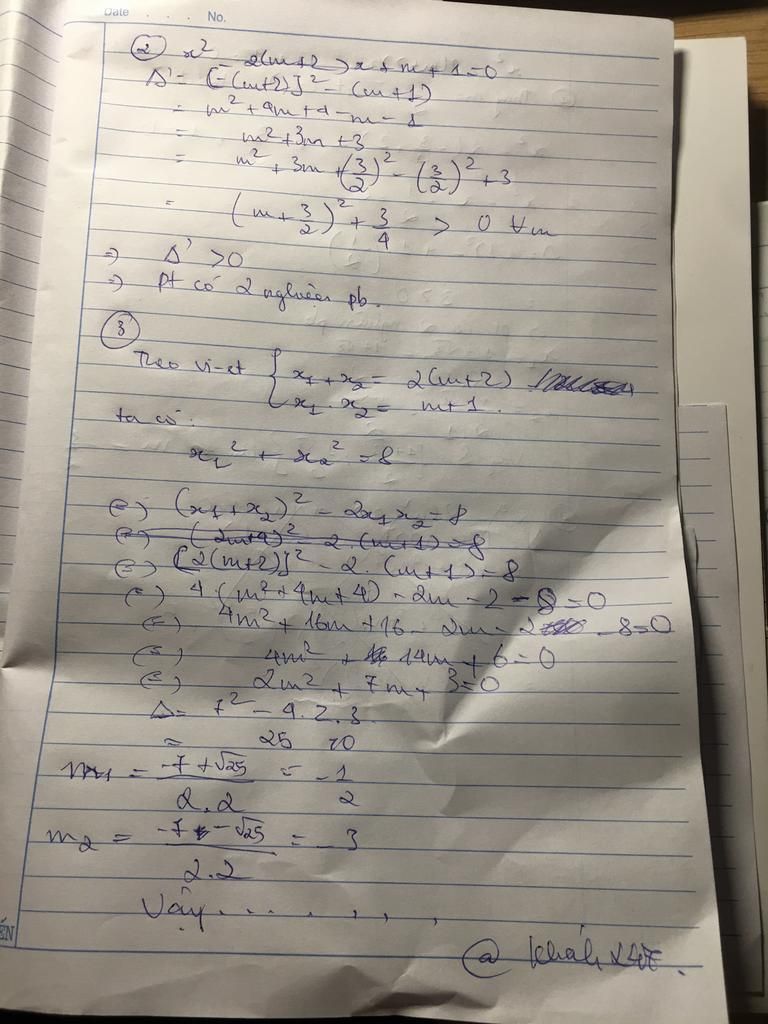 Date . . . No.
② x² - 2(m+2)x + m + 1 = 0
Δ' = [-(m+2)]² - (m+1)
= m² + 4m + 4 - m - 1
= m² + 3m + 3
= m² + 3m + (3/2)² - (3/2)² + 3
= (m + 3/2)² + 3/4 > 0 ∀m
=> Δ' > 0
=> pt có 2 nghiệm pb.
③
Theo vi-et { x₁ + x₂ = 2(m+2)
x₁ . x₂ = m+1.
ta có:
x₁² + x₂² = 8
(=) (x₁ + x₂)² - 2x₁x₂ = 8
(=) (2m+4)² - 2.(m+1) = 8
(=) [2(m+2)]² - 2.(m+1) = 8
(=) 4(m² + 4m + 4) - 2m - 2 - 8 = 0
(=) 4m² + 16m + 16 - 2m - 2 - 8 = 0
(=) 4m² + 14m + 6 = 0
(=) 2m² + 7m + 3 = 0
Δ = 7² - 4.2.3
= 25 >0
m₁ = (-7 + √25)/(2.2) = -1/2
m₂ = (-7 - √25)/(2.2) = -3
Vậy . . . . . , , ,
@